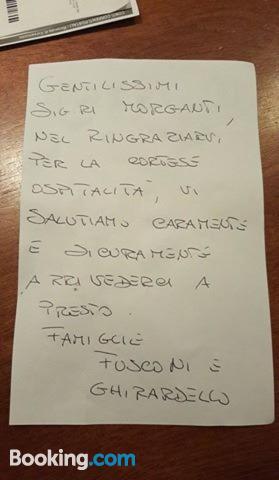 GENTILISSIMI
SIG.RI MORGANTI,
NEL RINGRAZIARVI
PER LA CORTESE
OSPITALITÀ, VI
SALUTIAMO CARAMENTE
E SICURAMENTE
ARRIVEDERCI A
PRESTO.
FAMIGLIE
FUSCONI E
GHIRARDELLO
Booking.com